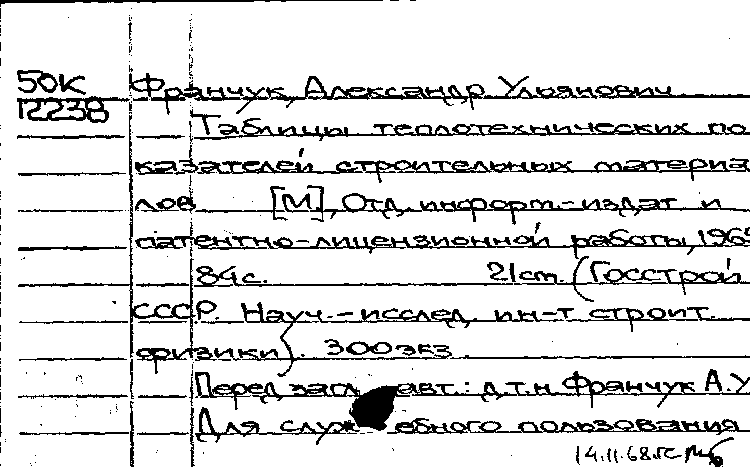 50К Франчук, Александр Ульянович
12238
Таблицы теплотехнических по
казателей строительных материа
лов [М], Отд. информ.-издат и
патентно-лицензионной работы, 196
84с. 21см. (Госстрой
СССР. Науч.-исслед. ин-т строит.
физики). 300экз.
Перед загл. авт.: д.т.н. Франчук А.У
Для служебного пользования
14.11.68.